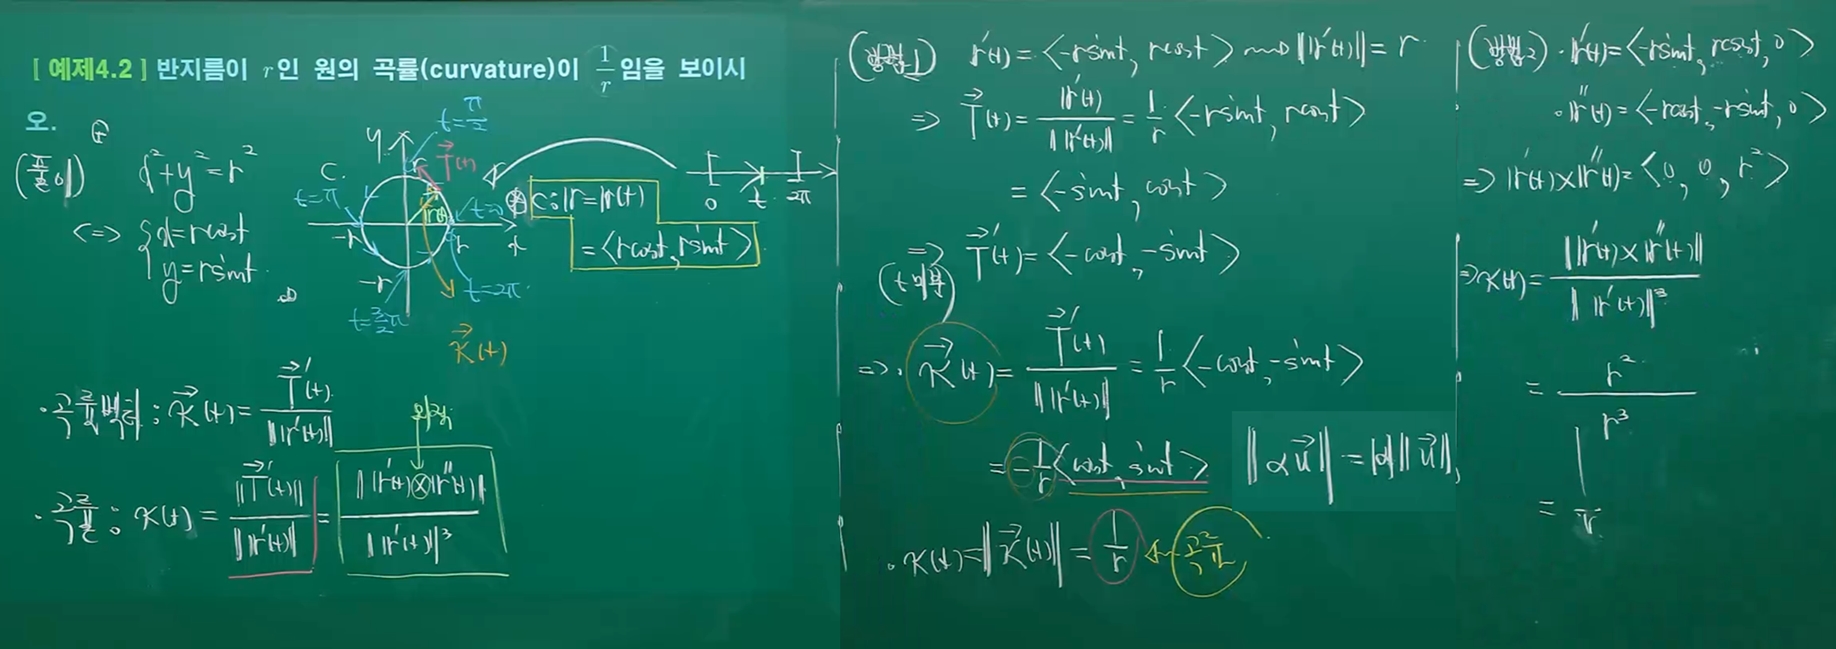 [ 예제4.2 ] 반지름이 r인 원의 곡률(curvature)이 1/r 임을 보이시
오.
(풀이)
x²+y²=r²
<=> { x=rcost
y=rsint
C.
y
x
t=π/2
T⃗(t)
t=π
t=0
t=2π
t=3/2π
-r
r
-r
K⃗(t)
0 t 2π
C: r=r(t)
=<rcost, rsint>
·곡률벡터: K⃗(t)= T⃗'(t) / ||r'(t)||
외적
·곡률: K(t) = ||T⃗'(t)|| / ||r'(t)|| = ||r'(t)×r''(t)|| / ||r'(t)||³
(방법1) r'(t)=<-rsint, rcost> ⇝ ||r'(t)||=r.
=> T⃗(t)= r'(t) / ||r'(t)|| = 1/r <-rsint, rcost>
= <-sint, cost>
=> T⃗'(t)=<-cost, -sint>
(t 미분)
=>. K⃗(t)= T⃗'(t) / ||r'(t)|| = 1/r <-cost, -sint>
= -1/r <cost, sint>
||αu⃗|| = |α| ||u⃗||
·K(t)=||K⃗(t)|| = 1/r ← 곡률
(방법2)·r'(t)=<-rsint, rcost, 0>
·r''(t)=<-rcost, -rsint, 0>
=> r'(t)×r''(t)=<0, 0, r²>
=> K(t)= ||r'(t)×r''(t)|| / ||r'(t)||³
= r² / r³
= 1/r